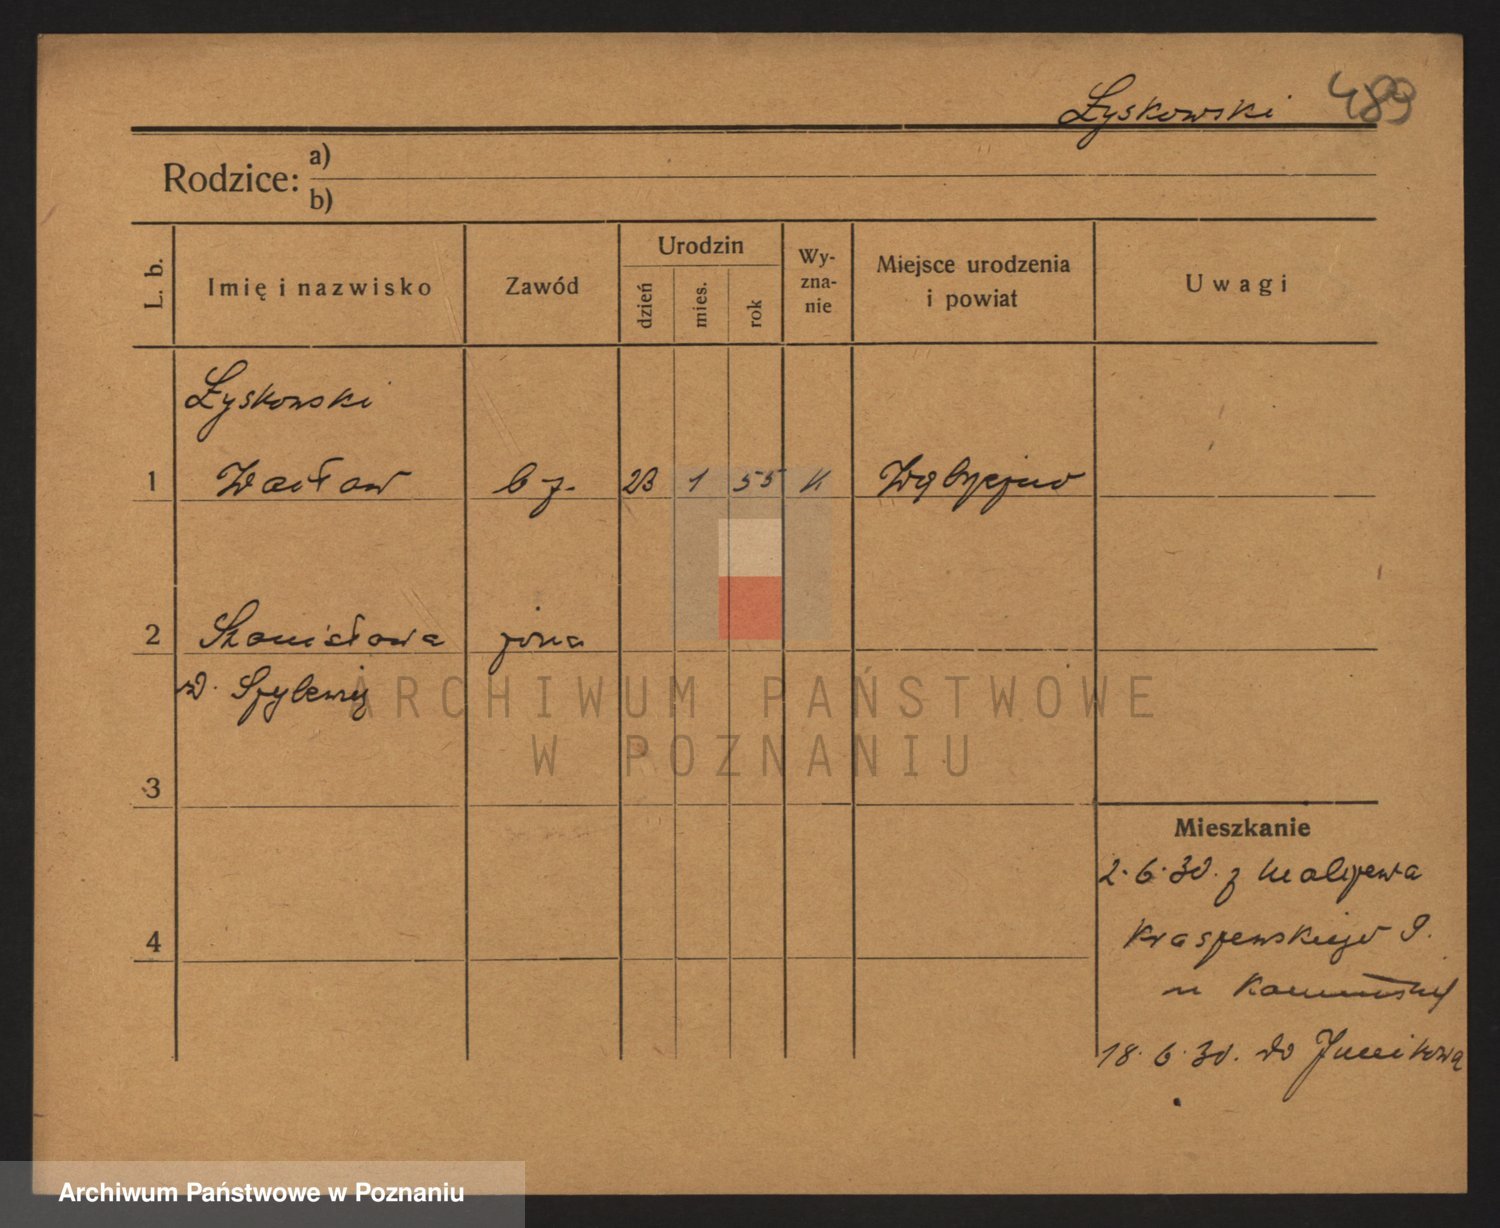 Łyskowski 489
Rodzice: a)
b)
L. b. Imię i nazwisko Zawód Urodzin dzień mies. rok Wy-zna-nie Miejsce urodzenia i powiat Uwagi
Łyskowski
1 Wacław b. z. 23 1 55 K
2 Stanisława żona
3
4
Mieszkanie
2.6.30. z
Kraszewskiego 9.
18.6.30. do Junikowa
ARCHIWUM PAŃSTWOWE
W POZNANIU
Archiwum Państwowe w Poznaniu